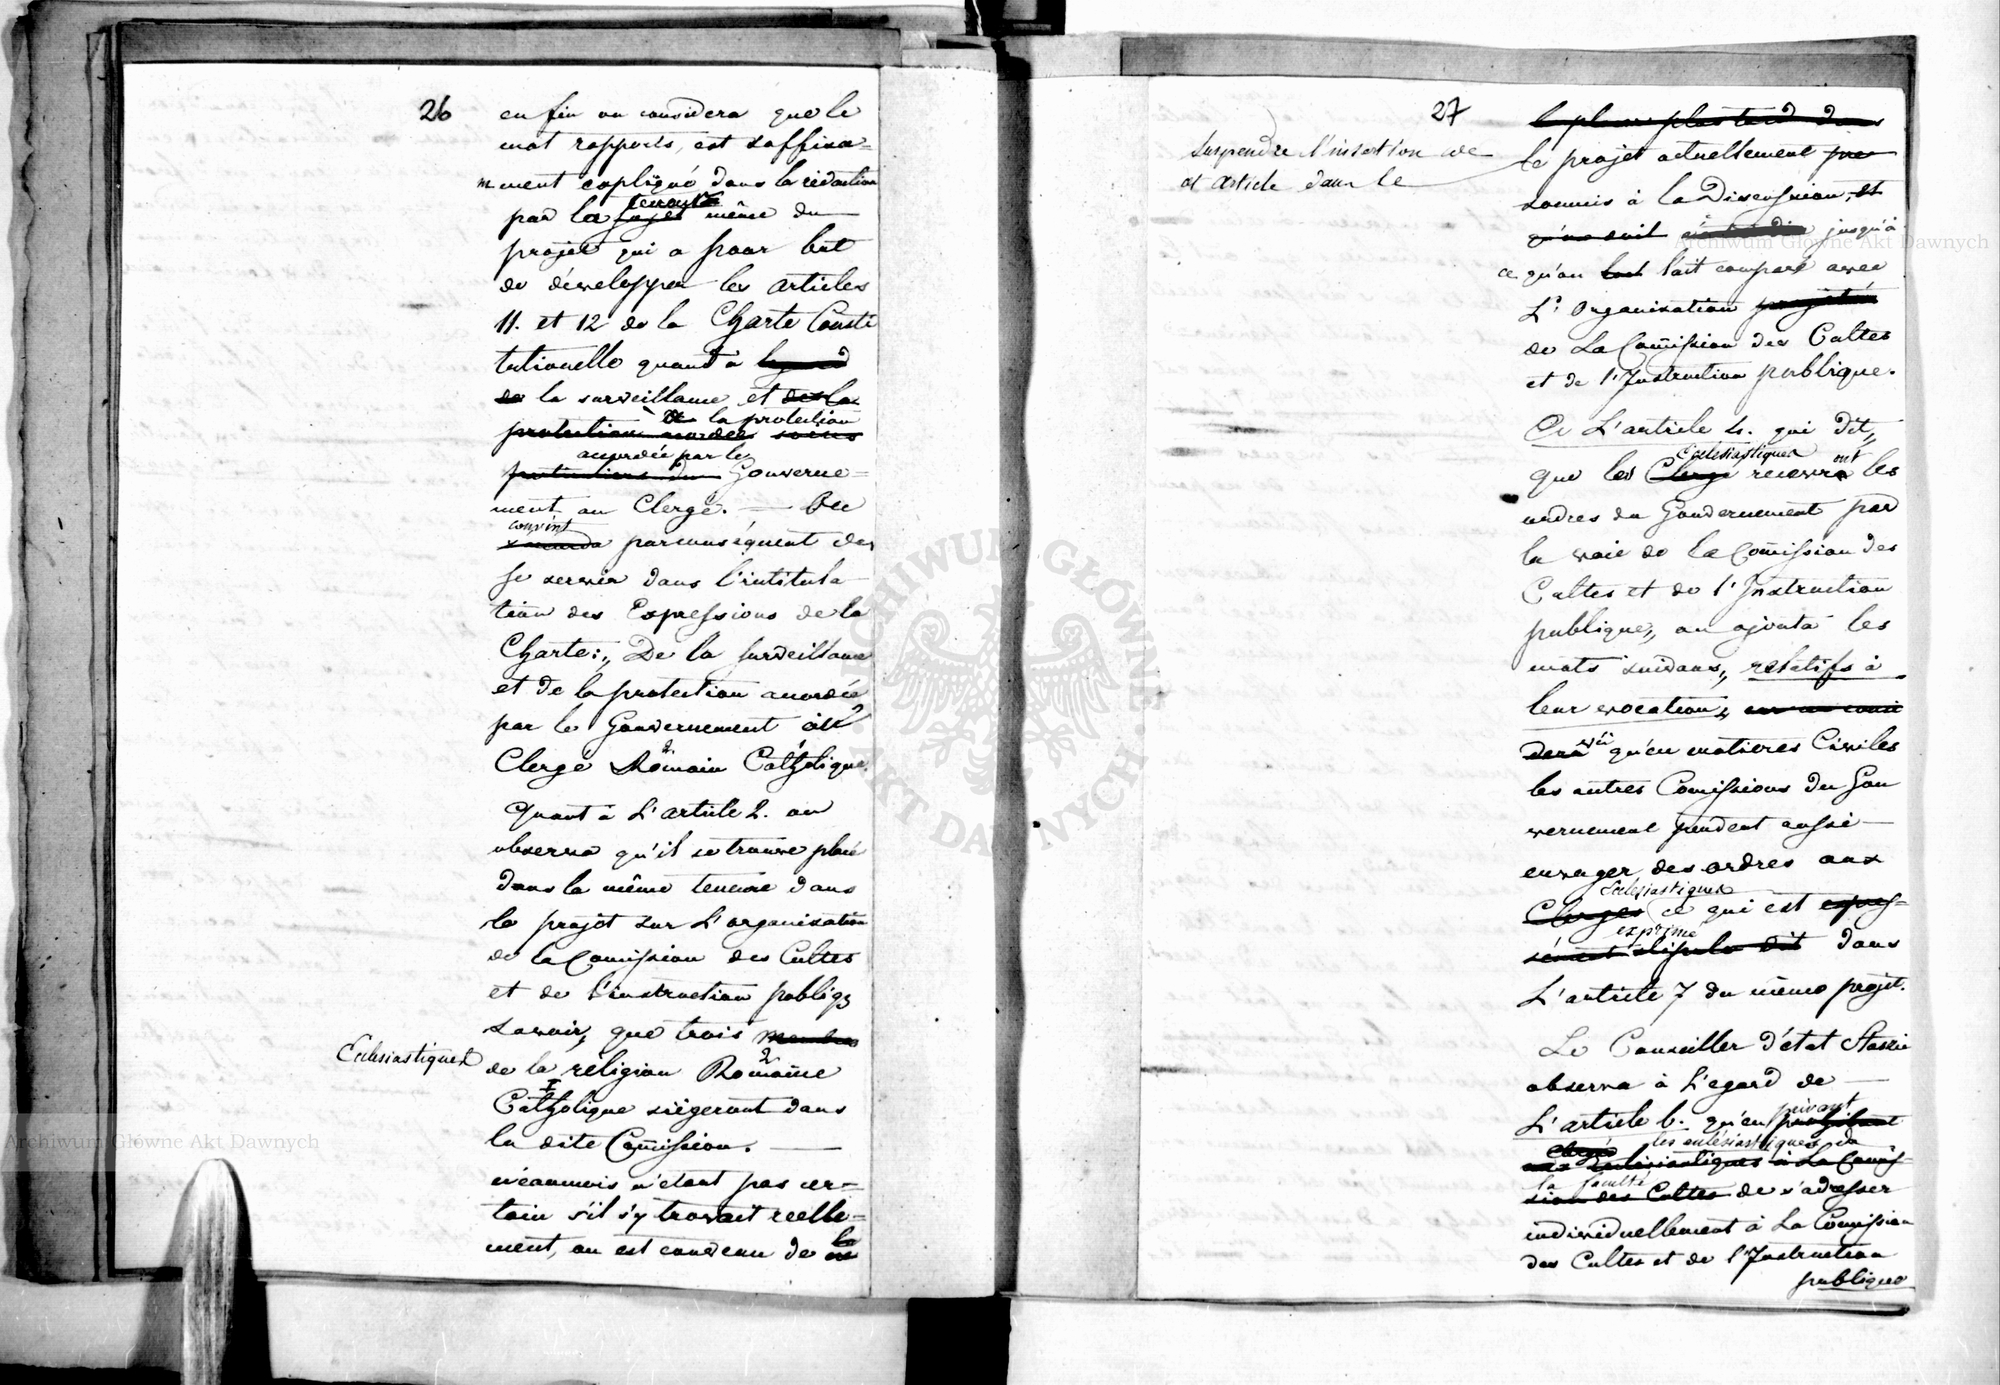 26
en fin on considera que le
mot rapports, est suffisa-
mment expliqué dans la rédaction
par la teneur même du
projet qui a pour but
de développer les articles
11. et 12 de la Charte Consti
tutionelle quand a
de la surveillance et de la
la protection
protection accordée
accordée par le
Gouverne-
ment au Clergé. — On
convint
parconséquent de
se servir dans l'intitula-
tion des Expressions de la
Charte: „ De la surveillance
et de la protection accordée
par le Gouvernement au
Clergé Romain Catholique.
Quant à L'article 2. on
observa qu'il se trouve placé
dans la même teneur dans
le projet sur L'organisation
de la Comission des Cultes
et de l'instruction publiq;
savoir, que trois membres
Ecclesiastiques
de la réligion Romaine
Catholique siégeront dans
la dite Comission. —
néanmois n'étant pas cer-
tain s'il s'y trouvait réelle-
ment, on est convenu de
27
le placer plus tard dans
suspendre l'insertion de
cet article dans le
le projet actuellement
soumis à la Discussion, et
qu'on doit jusqu'à
ce qu'on l'ait comparé avec
L'Organisation projettée
de La Comission des Cultes
et de l'Instruction publique.
A L'article 4. qui dit„
Ecclesiastiques ont
que les Clergé recevra les
ordres du Gouvernement par
la voie de la Comission des
Cultes et de l'Instruction
publique„ on ajouta les
mots suivans„ relatifs à
leur vocation„
qu'en matieres Civiles
les autres Comissions du Gou
vernement peuvent aussi —
envoyer des ordres aux
Ecclésiastiques
Clergés ce qui est expres-
exprimé
sément stipulé dit dans
L'article 7 du même projet.
Le Conseiller d'état Staszic
observa à L'egard de —
privant
L'article 6. qu'en
les ecclésiastiques de
aux Ecclésiastiques à La Comis-
la faculté
sion des Cultes de s'adresser
individuellement à La Comission
des Cultes et de l'Instruction
publique
Archiwum Główne Akt Dawnych
Archiwum Główne Akt Dawnych
ARCHIWUM GŁÓWNE AKT DAWNYCH